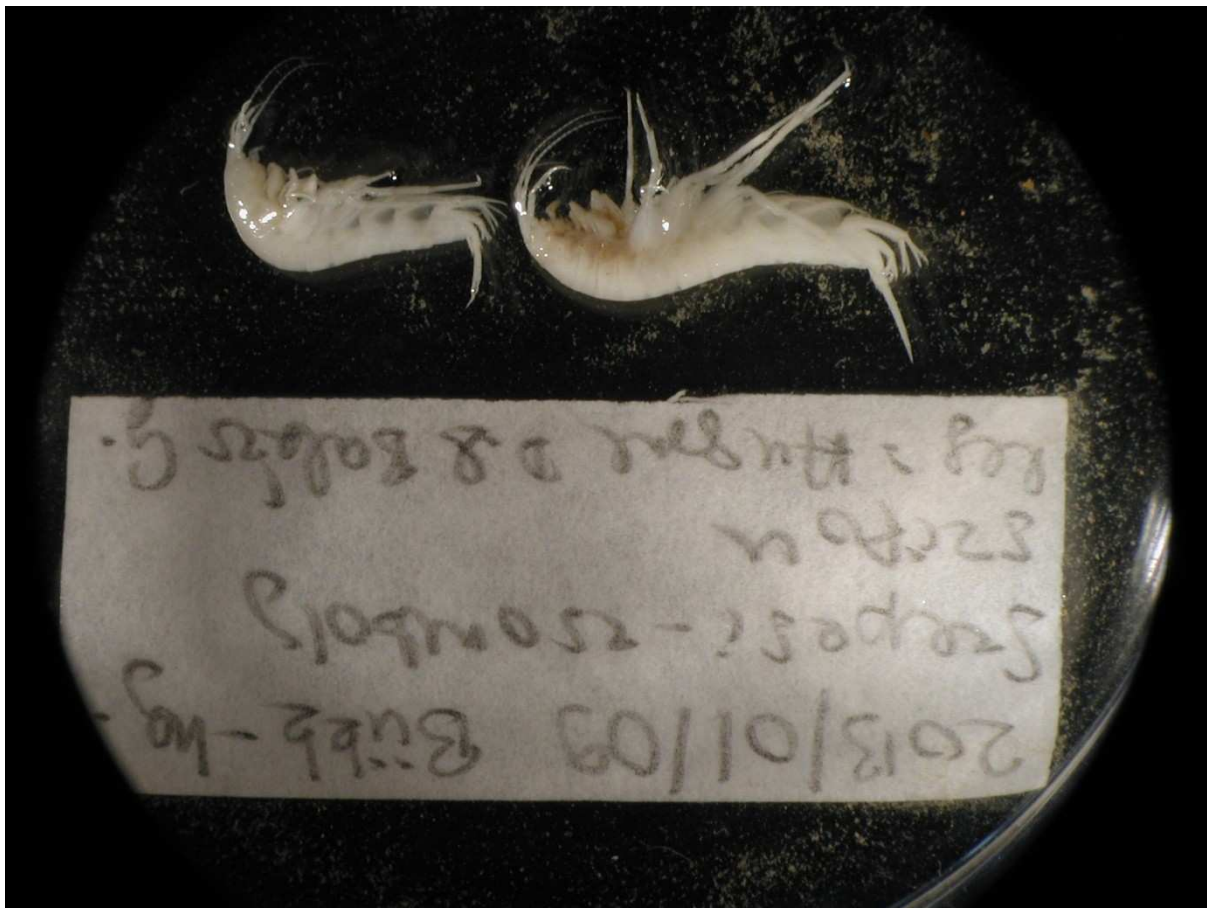 2013/01/09 Bükk-hg.
Szepesi-zsomboly
szifon
leg: Angyal D & Balázs G.